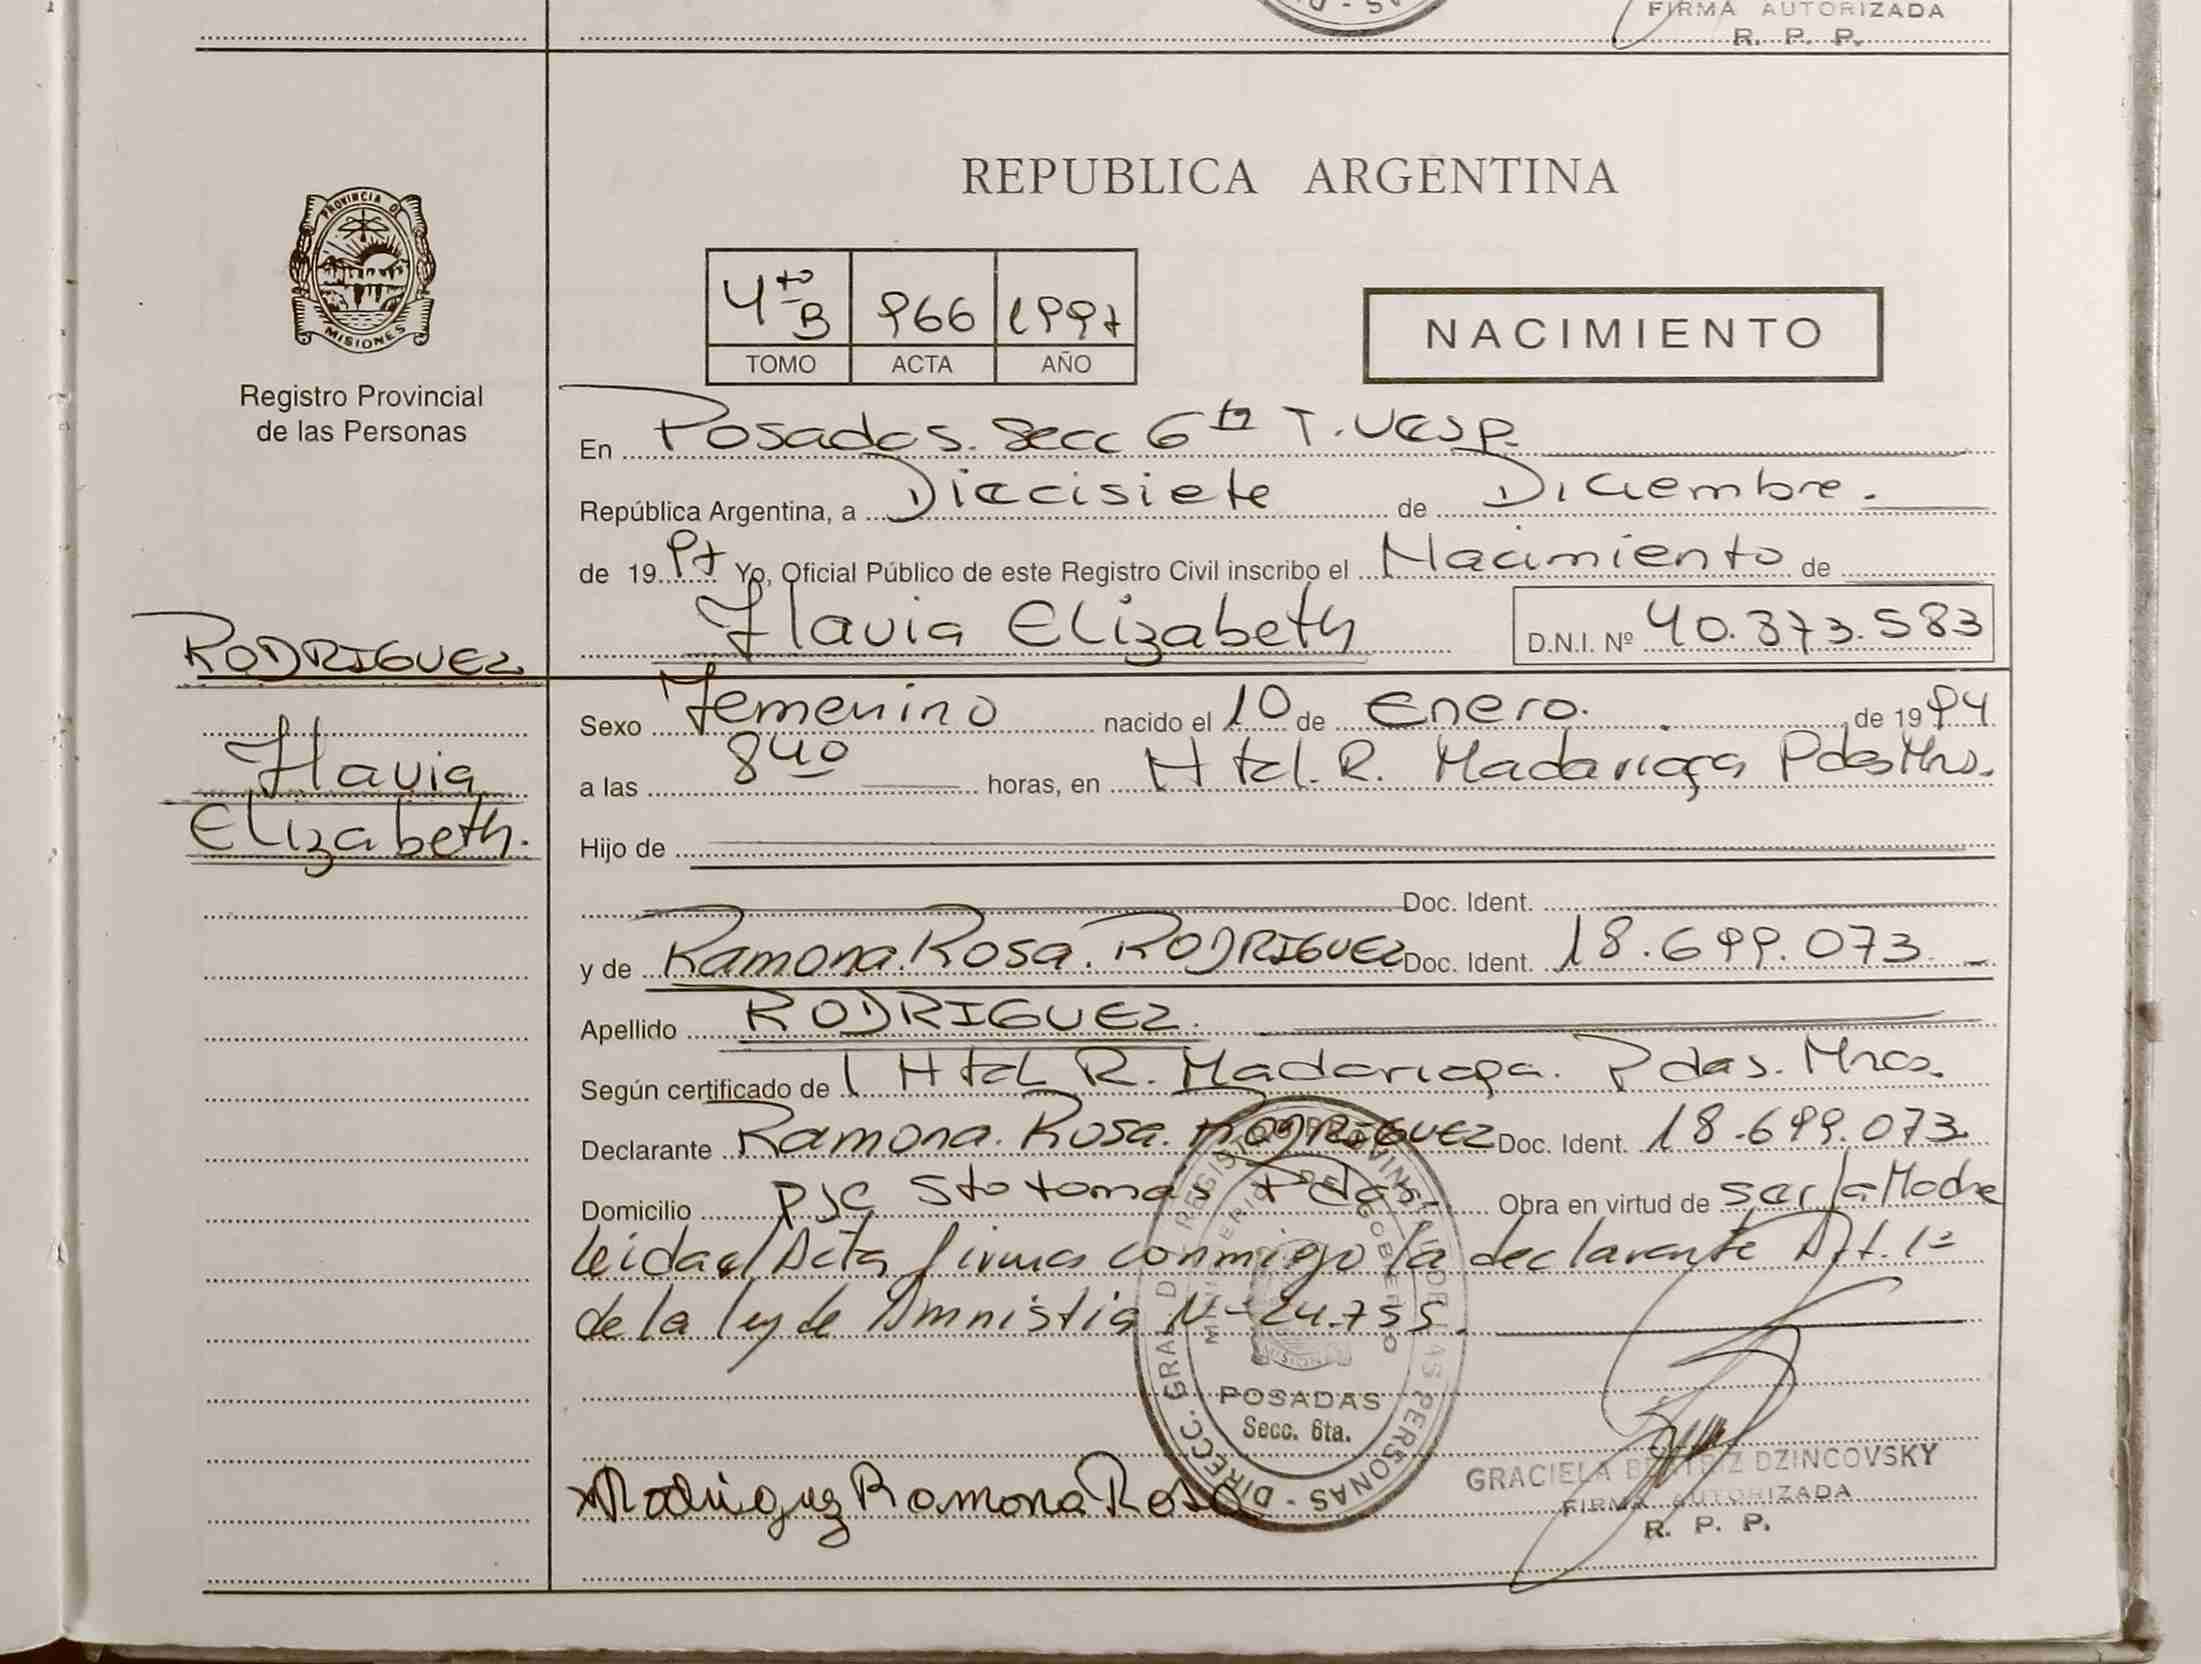 FIRMA AUTORIZADA
R. P. P.
PROVINCIA DE
MISIONES
Registro Provincial
de las Personas
RODRIGUEZ
Flavia
Elizabeth.
REPUBLICA ARGENTINA
4to B 966 1997
TOMO ACTA AÑO
NACIMIENTO
En Posadas. Secc 6ta T. Vesp.
República Argentina, a Diecisiete de Diciembre.
de 1997 Yo, Oficial Público de este Registro Civil inscribo el Nacimiento de
Flavia Elizabeth D.N.I. Nº 40.373.583
Sexo Femenino nacido el 10 de Enero. de 1994
a las 840 horas, en Htal. R. Madariaga Pdas Mnes.
Hijo de
Doc. Ident.
y de Ramona. Rosa. RODRIGUEZ Doc. Ident. 18.699.073
Apellido RODRIGUEZ.
Según certificado de Htal R. Madariaga. Pdas. Mnes.
Declarante Ramona. Rosa. RODRIGUEZ Doc. Ident. 18.699.073
Domicilio PJe Sto tomás Pdas. Obra en virtud de ser la Madre
leida el Acta firma conmigo la declarante Art. 1º
de la ley de Amnistia Nº 24.755.
DIRECC. GRAL D REGISTRO PROVINCIAL DE LAS PERSONAS
MINISTERIO DE GOBIERNO
MISIONES
POSADAS
Secc. 6ta.
Rodriguez Ramona Rosa
GRACIELA BEATRIZ DZINCOVSKY
FIRMA AUTORIZADA
R. P. P.